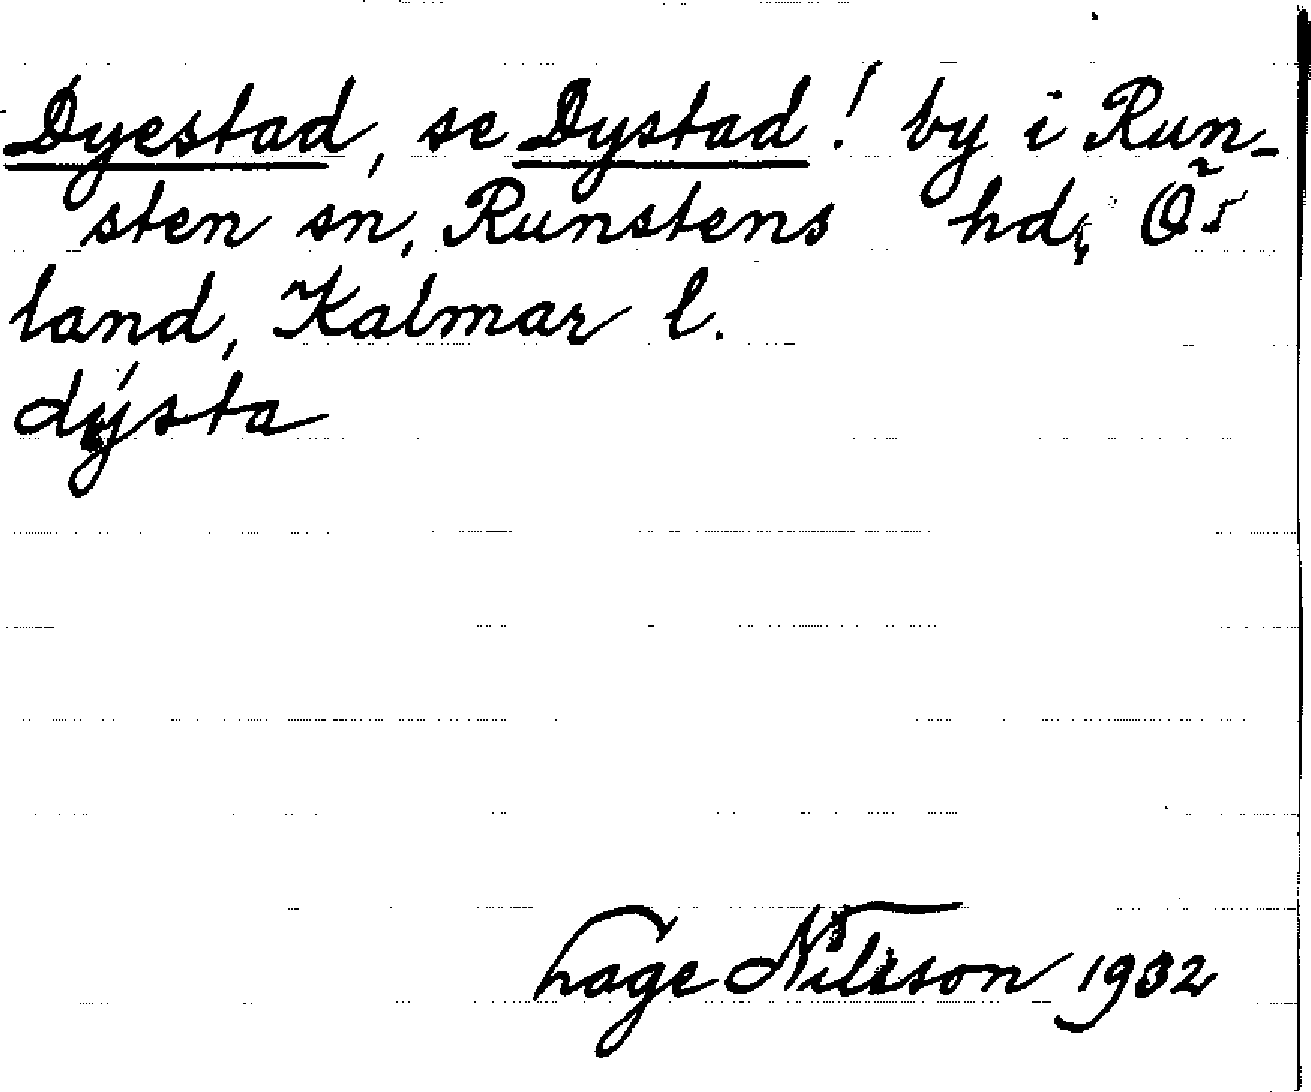 Dyestad, se Dystad! by i Run-
sten sn, Runstens hd, Ö-
land, Kalmar l.
dýsta
Lage Nilsson 1932